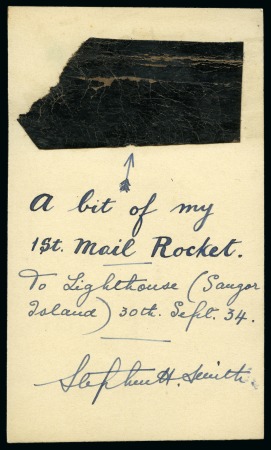 A bit of my
1st. Mail Rocket.
To Lighthouse (Saugor
Island) 30th. Sept. 34.
Stephen H. Smith